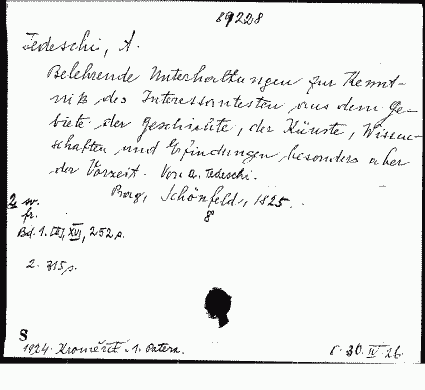 89228
Tedeschi, A.
Belehrende Unterhaltungen zur Kennt-
niß des Interessantesten aus dem Ge-
biete der Geschichte, der Künste, Wissen-
schaften und Erfindungen, besonders aber
der Vorzeit. Von A. Tedeschi.
Prag, Schönfeld, 1825.
8
2 w.
fr.
Bd. 1. XVI, 252 s.
2. 315 s.
S
1924. Kroměříž. 1. Patera.
30. IV. 26.